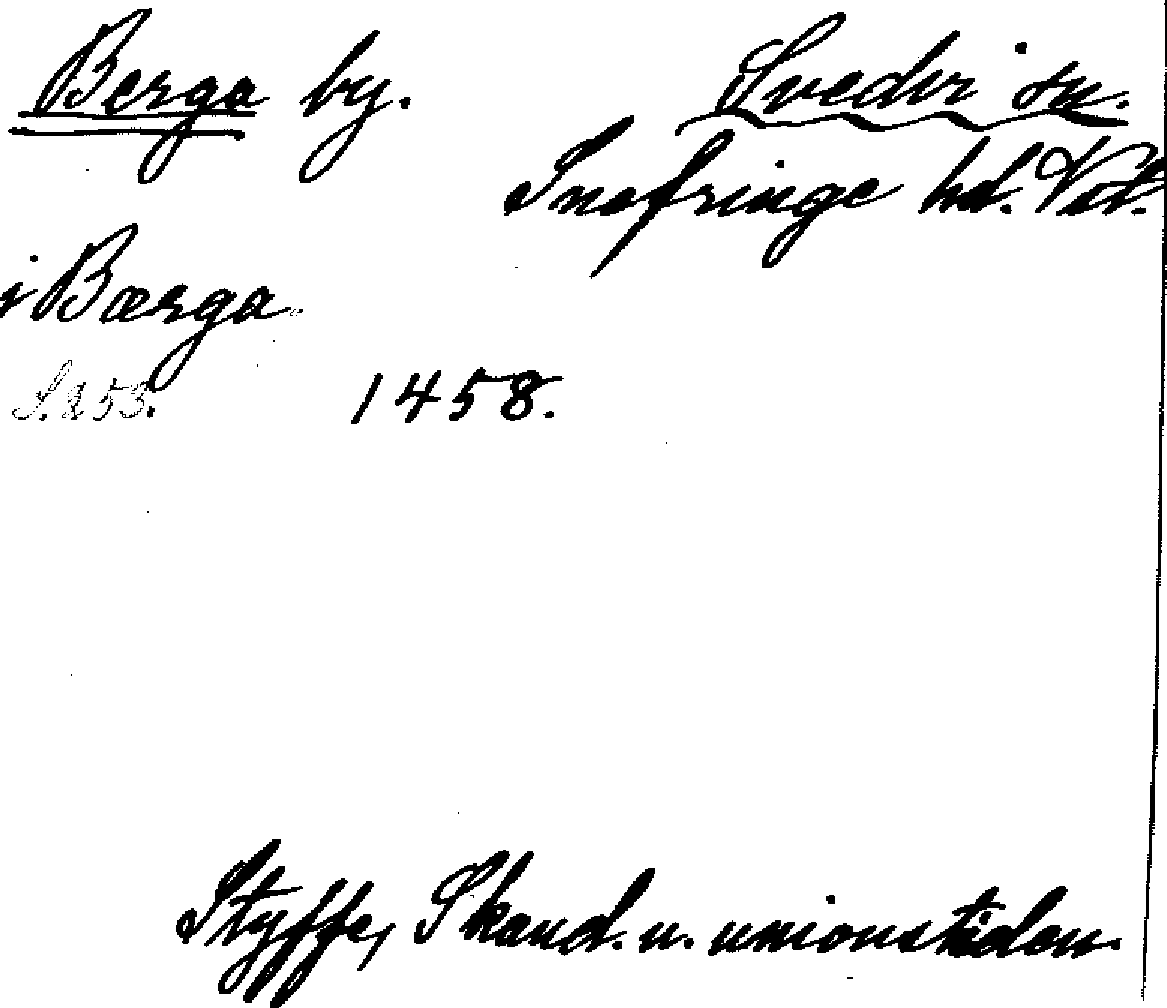 Berga by. Svedvi sn.
Snefringe hd. Vstm.
i Bærga
S. 253. 1458.
Styffe, Skand. u. unionstiden.